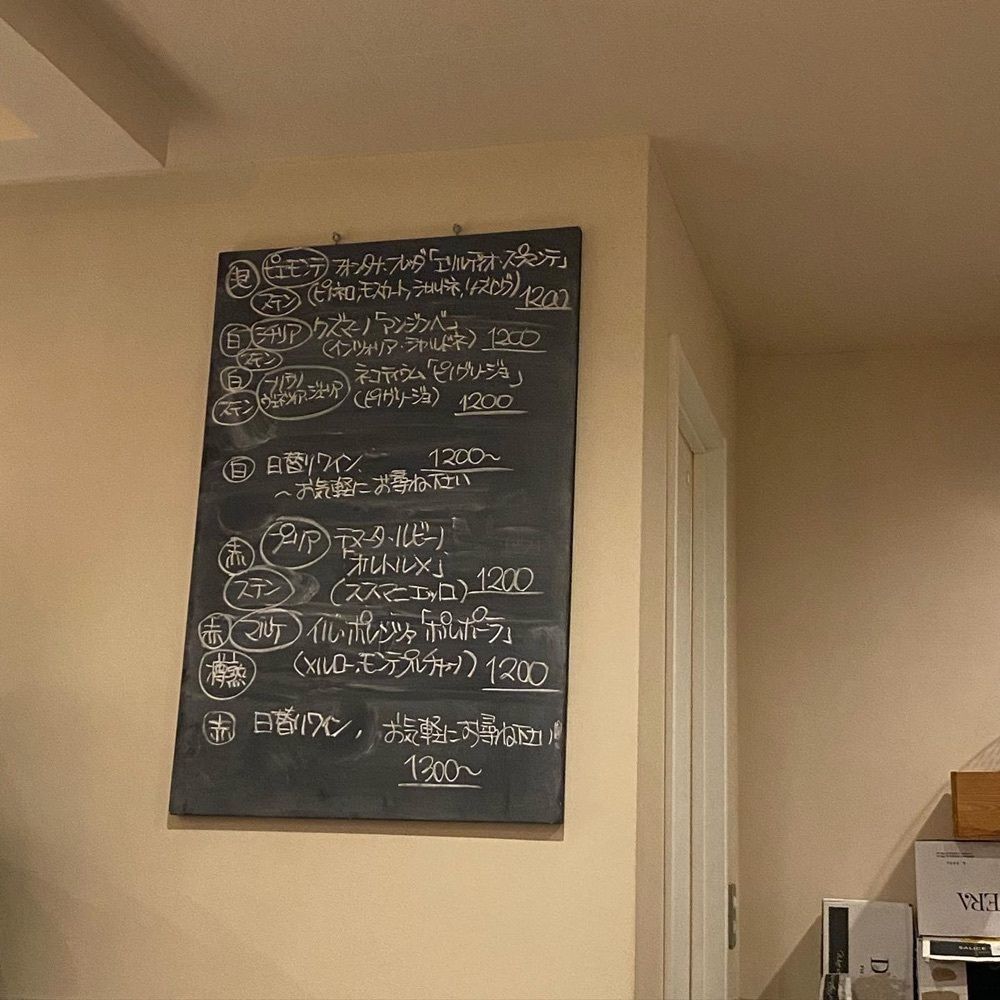 泡 ピエモンテ フォンタナ・フレッダ「エリルディオ・スプマンテ」
ステン (ピノネロ,モスカート,シャルドネ,リースリング) 1200
白 シチリア クズマーノ「アンジンベ」 1200
ステン (インツォリア・シャルドネ)
白 フリウリ ネコティウム「ピノグリージョ」
ステン ヴェネツィア・ジュリア (ピノグリージョ) 1200
白 日替りワイン, 1200〜
〜お気軽にお尋ね下さい
赤 プーリア テヌータ・ルビーノ
「オルトルメ」
ステン (ススマニエッロ) 1200
赤 マルケ イル・ポレンツァ「ポルポーラ」
樽熟 (メルロー,モンテプルチャーノ) 1200
赤 日替りワイン, お気軽にお尋ね下さい
1300〜
ERA
D
SALICE